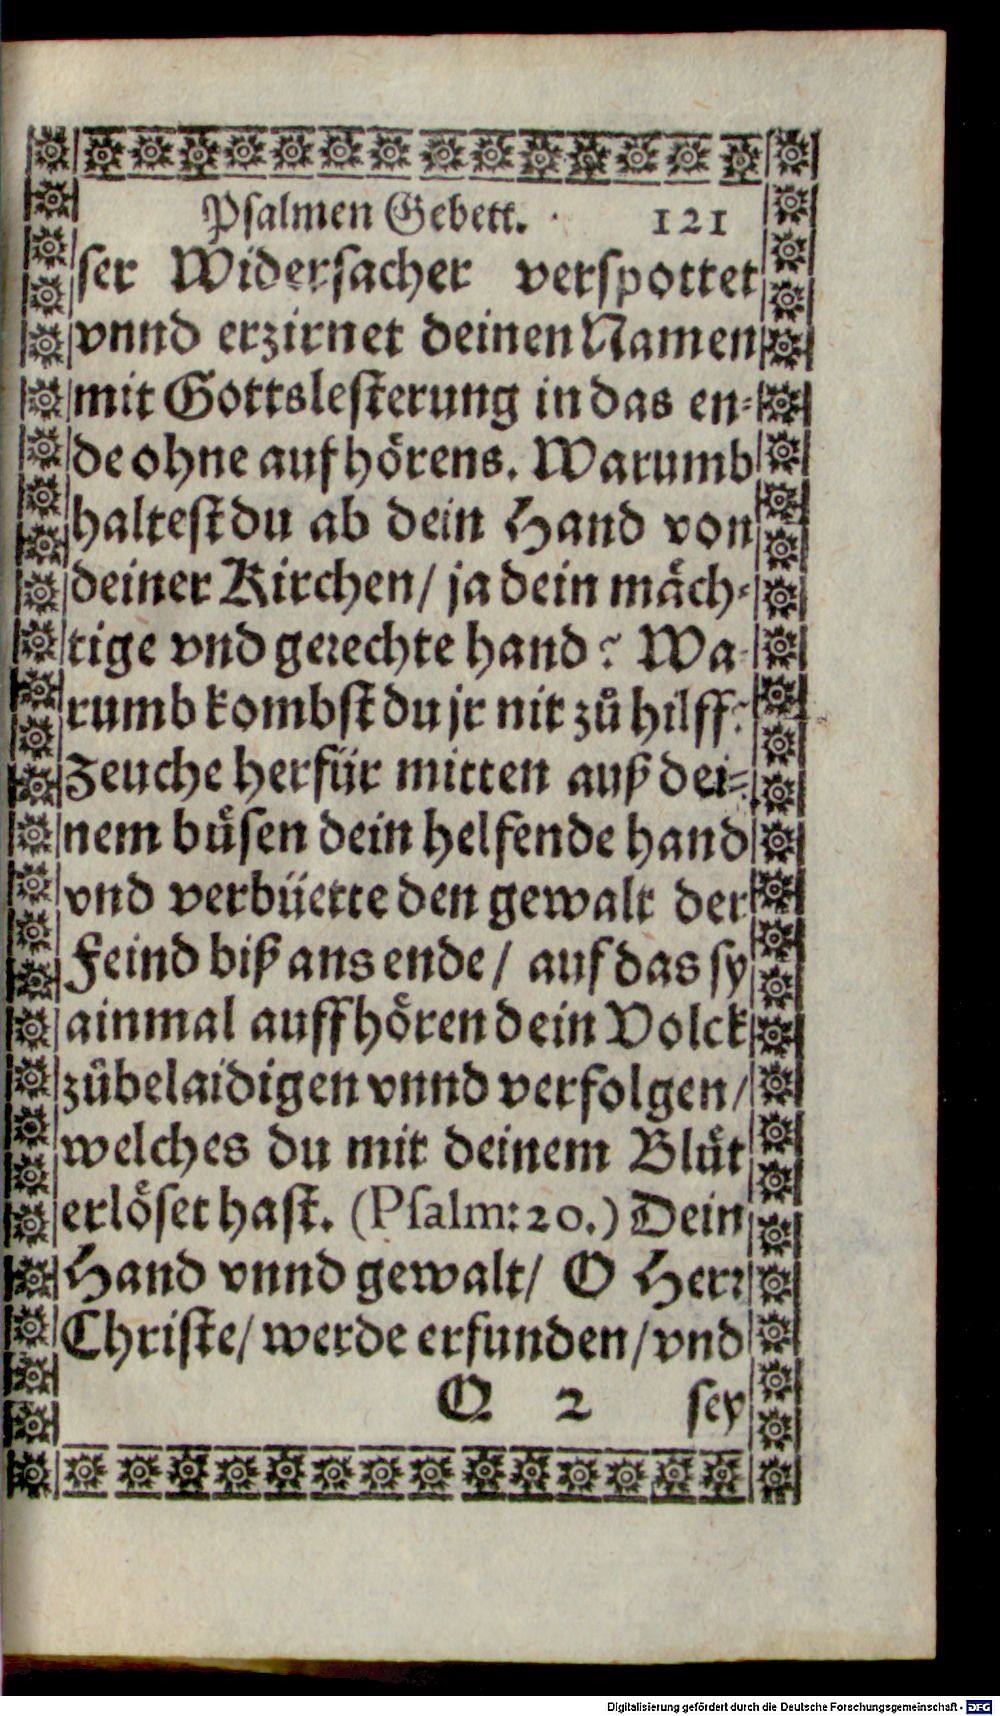 Psalmen Gebett. 121
ser Widersacher verspottet
vnnd erzirnet deinen Namen
mit Gottslesterung in das en-
de ohne aufhörens. Warumb
haltest du ab dein Hand von
deiner Kirchen/ ja dein mäch-
tige vnd gerechte hand? Wa-
rumb kombst du jr nit zů hilff?
Zeuche herfür mitten auß dei-
nem bůsen dein helfende hand
vnd verbüette den gewalt der
Feind biß ans ende/ auf das sy
ainmal auffhören dein Volck
zůbelaidigen vnnd verfolgen/
welches du mit deinem Blůt
erlöset hast. (Psalm: 20.) Dein
Hand vnnd gewalt/ O Herr
Christe/ werde erfunden/ vnd
Q 2 sey
Digitalisierung gefördert durch die Deutsche Forschungsgemeinschaft - DFG